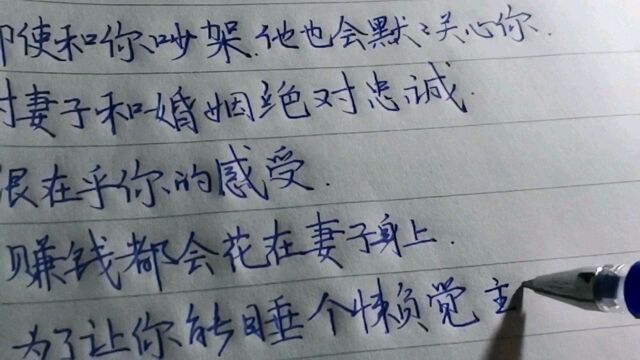 即使和你吵架.他也会默：关心你.
对妻子和婚姻绝对忠诚.
很在乎你的感受.
赚钱都会花在妻子身上.
为了让你能睡个懒觉 主